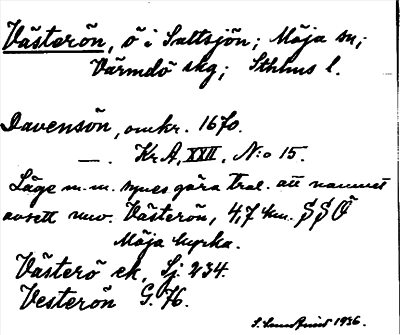 Västerön, ö i Saltsjön; Möja sn;
Värmdö skg; Sthlms l.
Davensön, omkr. 1670.
—. Kr A, XXII, N:o 15.
Läge m.m. synes göra trol. att namnet
avsett nuv. Västerön, 4,7 km. SSÖ
Möja kyrka.
Västerö ek, Sj. 234.
Vesterön G. 76.
1936.